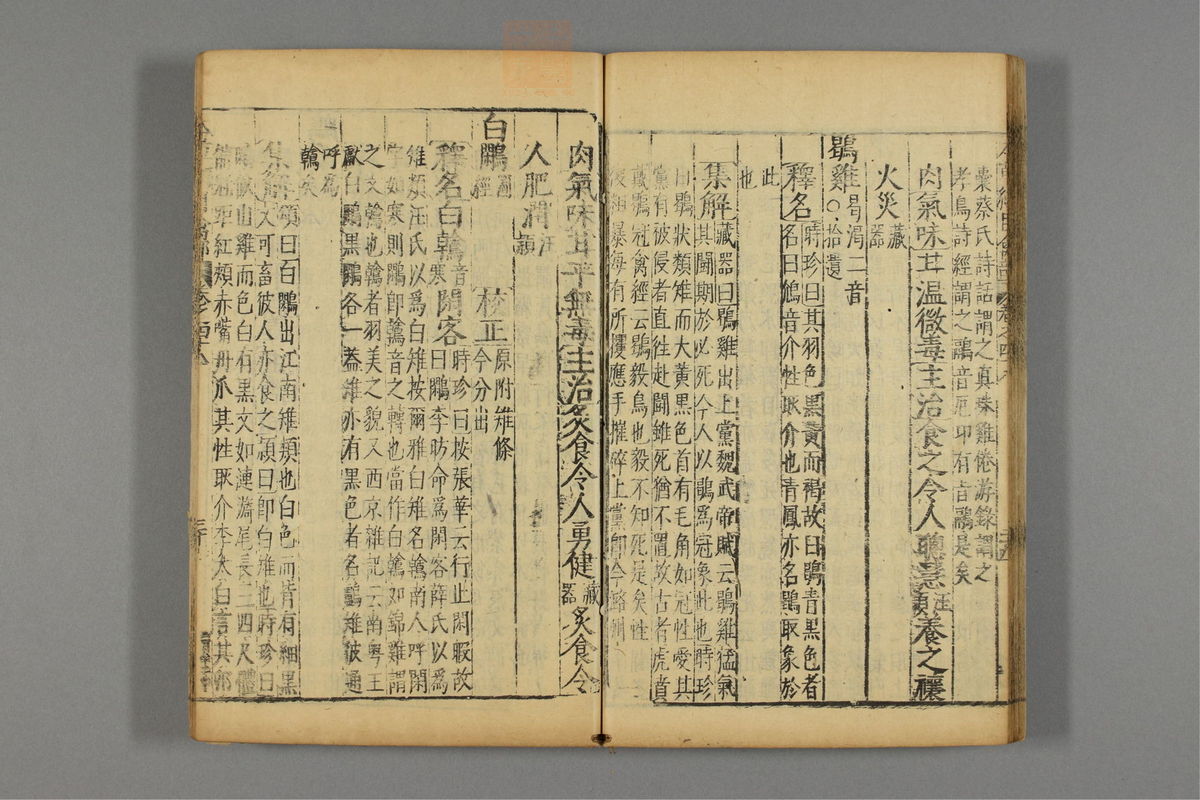 囊蔡氏詩話謂之真珠雞倦游錄謂之
孝鳥詩經謂之鷊音厄卭有旨鷊是矣
肉氣味甘溫微毒主治食之令人聰慧汪穎養之禳
火災藏器
鶡雞曷渴二音○拾遺
釋名時珍曰其羽色黑黃而褐故曰鶡青黑色者
名曰鳻音介性耿介也青鳳亦名鶡取象於
此也
集解藏器曰鶡雞出上黨魏武帝賦云鶡雞猛氣
其鬭期於必死今人以鶡爲冠象此也時珍
曰鶡狀類雉而大黃黑色首有毛角如冠性愛其
黨有被侵者直往赴鬭雖死猶不置故古者虎賁
戴鶡冠禽經云鶡毅鳥也毅不知死是矣性
復粗暴每有所攫應手摧碎上黨卽今潞州
肉氣味甘平無毒主治炙食令人勇健藏器炙食令
人肥潤汪穎
白鷴圖經 校正原附雉條今分出
釋名白鶾音寒閑客時珍曰按張華云行止閑暇故
曰鷴李昉命爲閑客薛氏以爲
雉類汪氏以爲白雉按爾雅白雉名鶾南人呼閑
字如寒則鷴卽鶾音之轉也當作白鶾如錦雞謂
之文鶾也鶾者羽美之貌又西京雜記云南粤王
獻白鷴黑鷴各一蓋雉亦有黑色者名鸕雉彼通
呼爲
鶾矣
集解頌曰白鷴出江南雉類也白色而背有細黑
文可畜彼人亦食之穎曰卽白雉也時珍曰
鷴似山雞而色白有黑文如漣漪尾長三四尺體
備冠距紅頰赤嘴丹爪其性耿介李太白言其卵